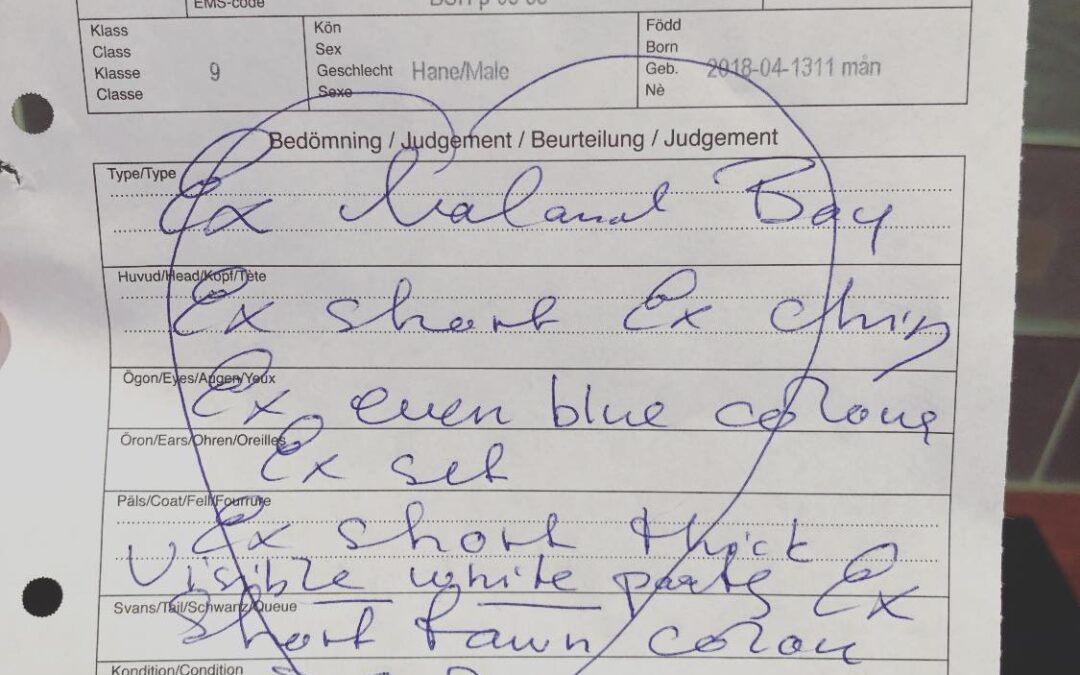 EMS-code
Klass
Class
Klasse
Classe
9
Kön
Sex
Geschlecht Hane/Male
Sexe
Född
Born
Geb. 2018-04-1311 mån
Nè
Bedömning / Judgement / Beurteilung / Judgement
Type/Type
Ex Bay
Huvud/Head/Kopf/Tète
Ex short Ex chin
Ögon/Eyes/Augen/Yeux
Ex even blue colour
Öron/Ears/Ohren/Oreilles
Ex set
Päls/Coat/Fell/Fourrure
Ex short thick
Visible white parts Ex
Svans/Tail/Schwanz/Queue
Short fawn colour
Kondition/Condition